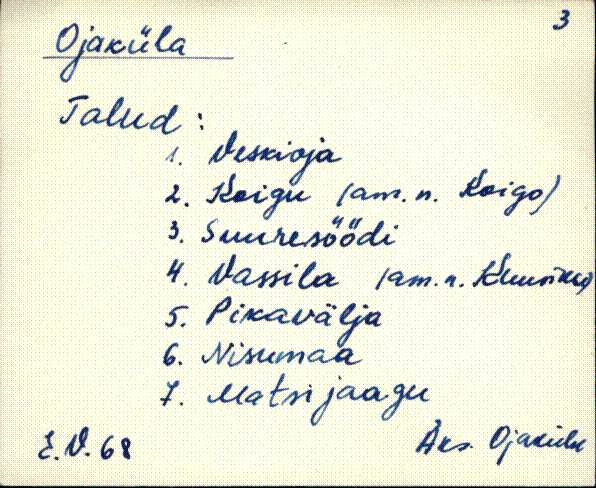 3
Ojaküla
Talud:
1. Veskioja
2. Koigu (am. n. Koigo)
3. Suuresöödi
4. Vassila (am. n.
5. Pikavälja
6. Nisumaa
7. Matsijaagu
E.V. 68
Äks. Ojaküla